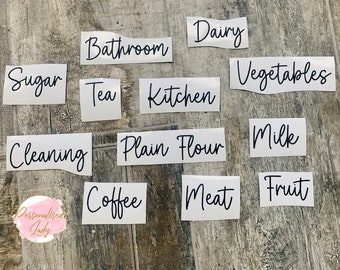 Bathroom
Dairy
Sugar
Tea
Kitchen
Vegetables
Cleaning
Plain Flour
Milk
Coffee
Meat
Fruit
Personalised
Lady